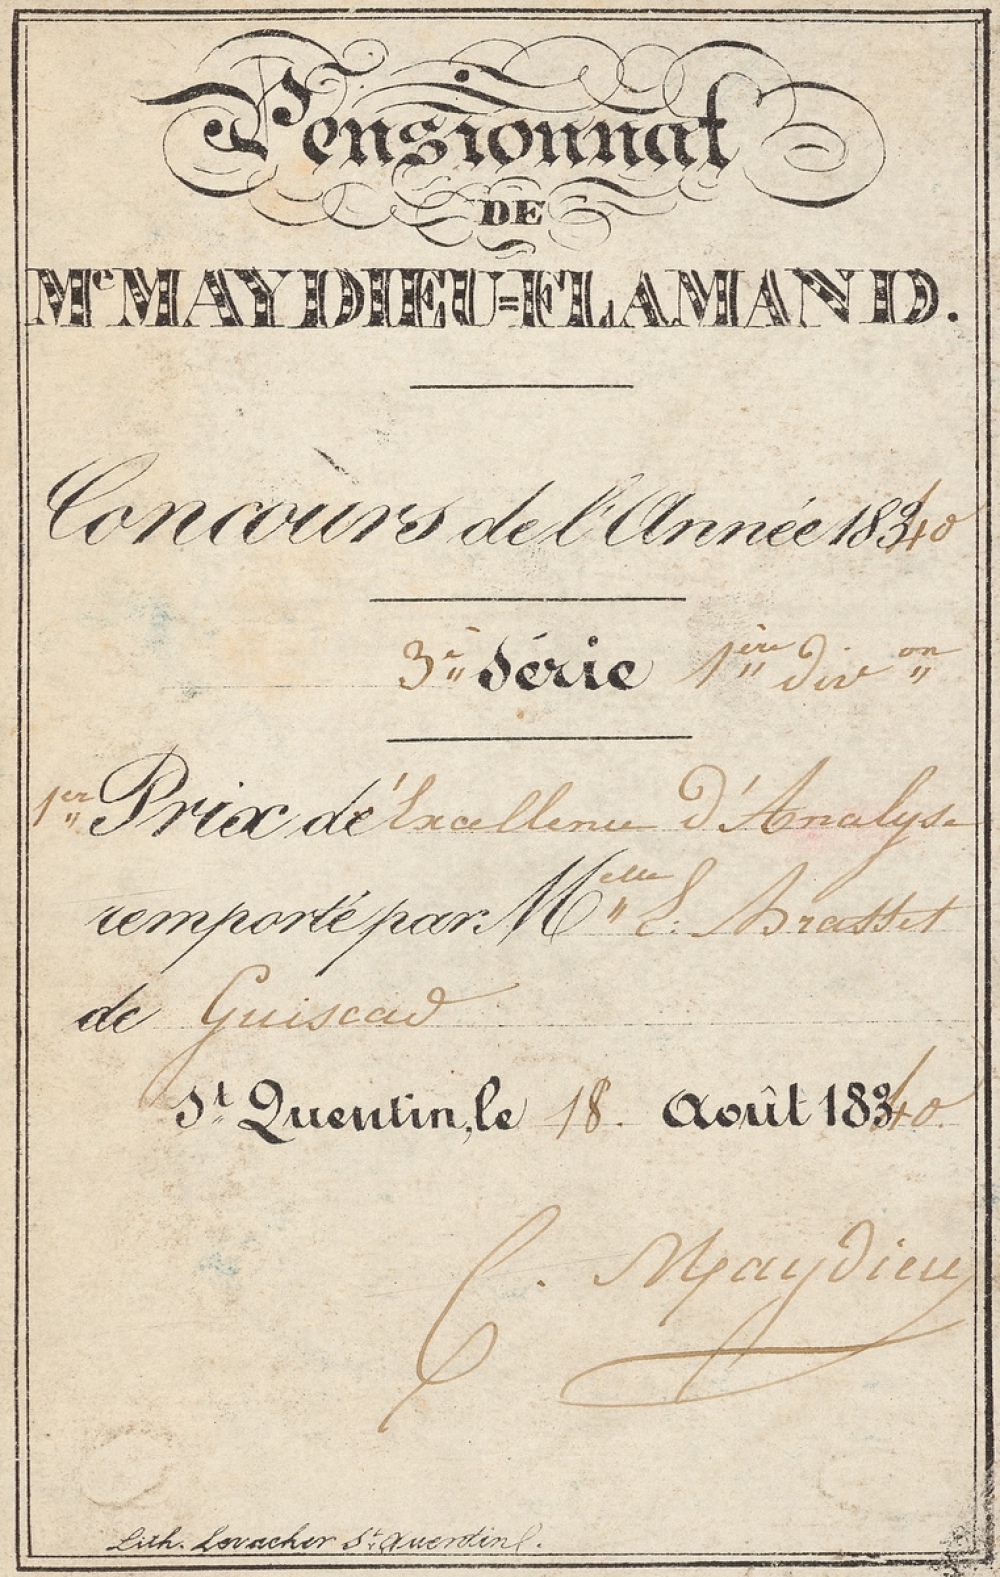 Pensionnat
DE
Me MAYDIEU=FLAMAND.
Concours de l'Année 1840
3e Série 1ère divon
1er Prix de l'Excellence d'Analyse
remporté par Melle E. Brasset
de Guiscad
St Quentin, le 18. Août 1840.
C. Maydieu
Lith. Levacher St Quentin.